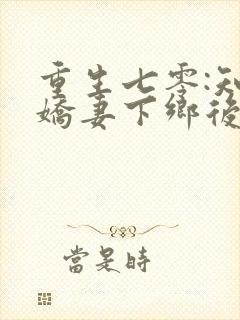 重生七零:知
嬌妻下鄉後
當是時